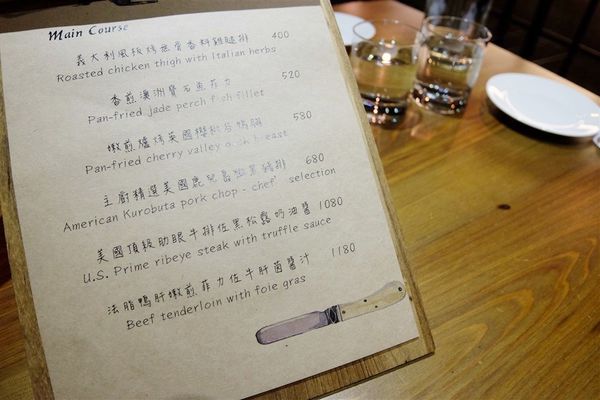 Main Course
義大利風板烤無骨香料雞腿排 400
Roasted chicken thigh with Italian herbs
香煎澳洲寶石魚菲力 520
Pan-fried jade perch fish fillet
嫩煎爐烤英國櫻桃谷鴨胸 580
Pan-fried cherry valley breast
主廚精選美國鹿兒島黑豬排 680
American Kurobuta pork chop - chef' selection
美國頂級肋眼牛排佐黑松露奶油醬 1080
U.S. Prime ribeye steak with truffle sauce
法脂鴨肝嫩煎菲力佐牛肝菌醬汁 1180
Beef tenderloin with foie gras